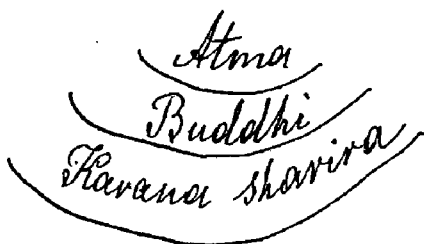 Atma
Buddhi
Karana sharira